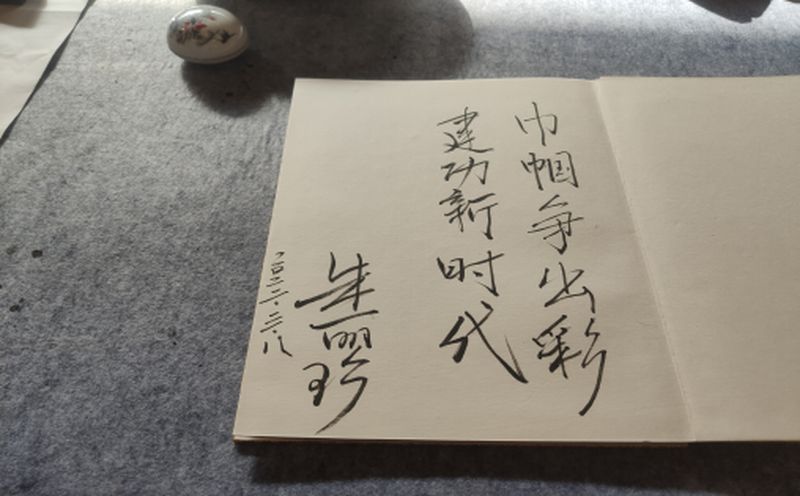 巾帼争出彩
建功新时代
朱丽珍
二〇二二·三·八